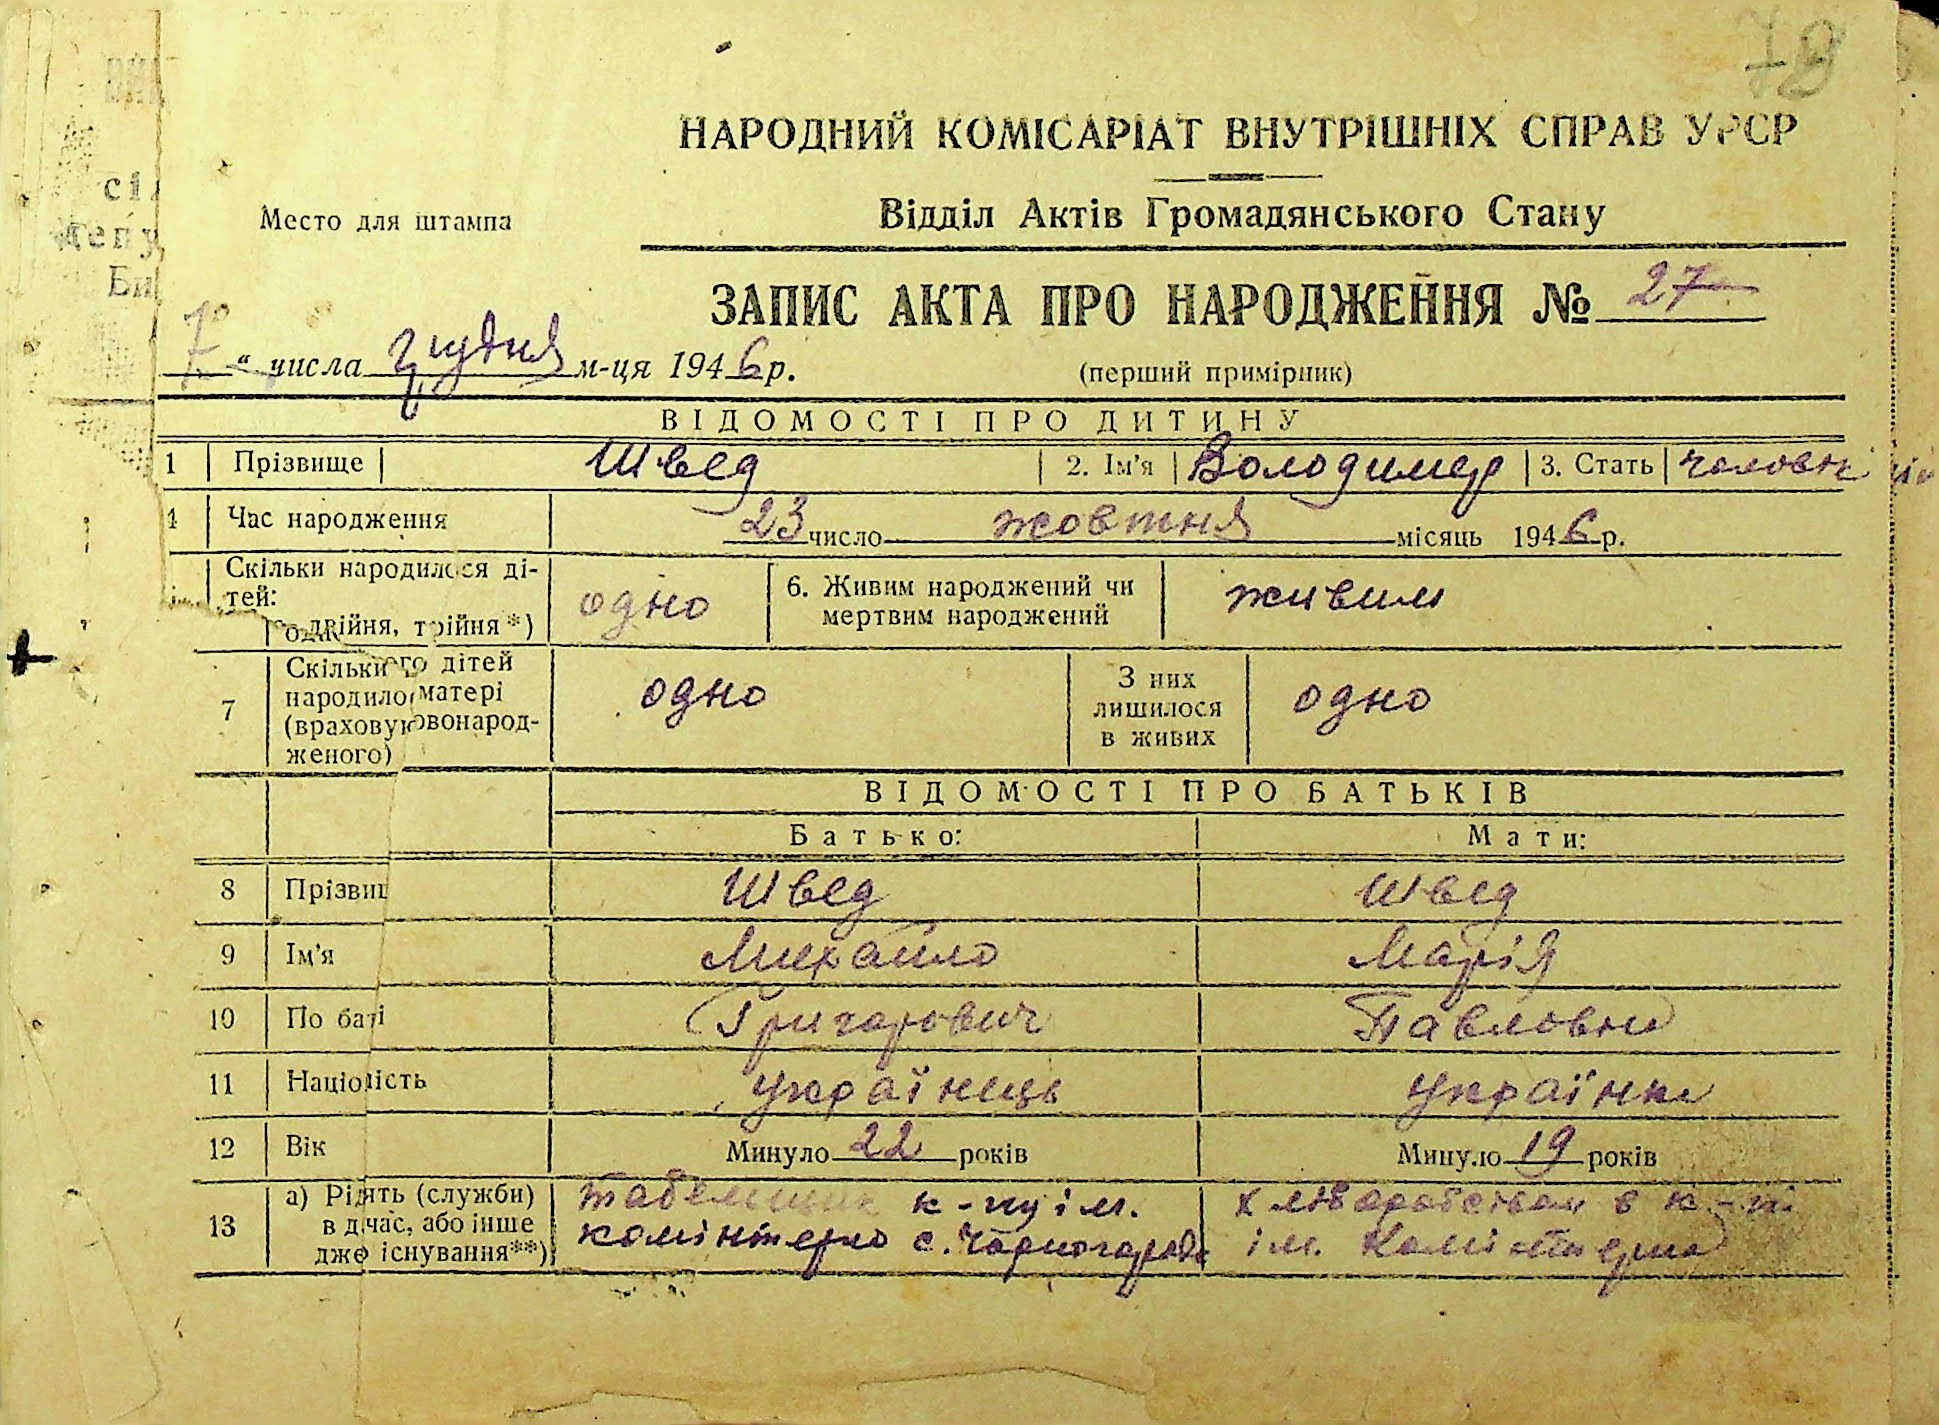 78
НАРОДНИЙ КОМІСАРІАТ ВНУТРІШНІХ СПРАВ УРСР
Место для штампа
Відділ Актів Громадянського Стану
ЗАПИС АКТА ПРО НАРОДЖЕННЯ № 27
7 " числа грудня м-ця 1946 р.
(перший примірник)
ВІДОМОСТІ ПРО ДИТИНУ
1 Прізвище Швед 2. Ім'я Володимер 3. Стать
4 Час народження 23 число жовтня місяць 1946 р.
Скільки народилося ді-
тей:
двійня, трійня*) одно
6. Живим народжений чи
мертвим народжений живим
7 Скільки дітей
народило матері
(врахову овонарод-
женого) одно
З них
лишилося
в живих одно
ВІДОМОСТІ ПРО БАТЬКІВ
Батько: Мати:
8 Прізвищ Швед Швед
9 Ім'я Михайло Марія
10 По баті Григорович Павловна
11 Націо ість українець українка
12 Вік Минуло 22 років Минуло 19 років
13 а) Рід ять (служби)
в д час, або інше
дже існування**)
табельщик к-пу ім.
комінтерна с.
в к-пі
ім. Комінтерна